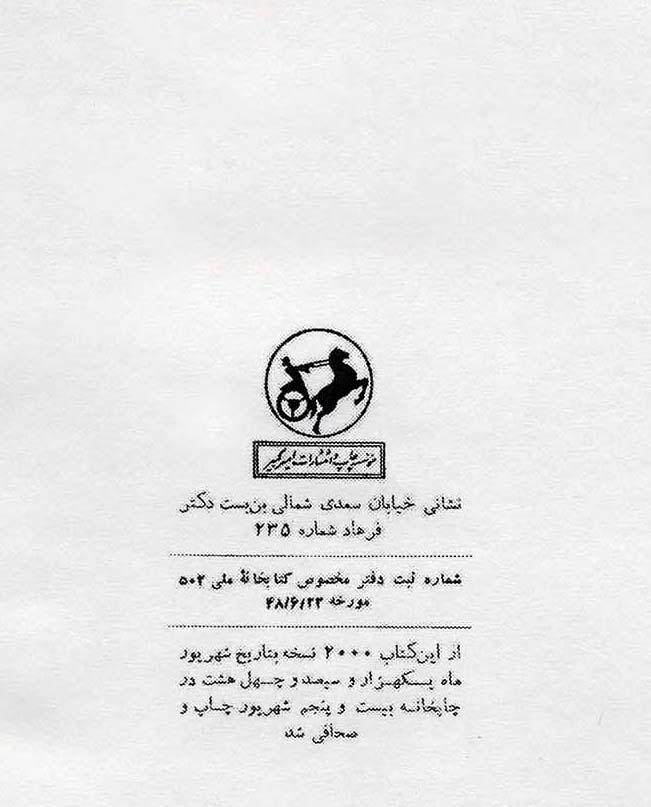 مؤسسه چاپ و انتشارات امیرکبیر
نشانی خیابان سعدی شمالی بن‌بست دکتر
فرهاد شماره ۲۳۵
شماره ثبت دفتر مخصوص کتابخانهٔ ملی ۵۰۲
مورخه ۴۸/۶/۲۲
از این‌کتاب ۲۰۰۰ نسخه بتاریخ شهریور
ماه یکهزار و سیصد و چهل هشت در
چاپخانه بیست و پنجم شهریور چاپ و
صحافی شد